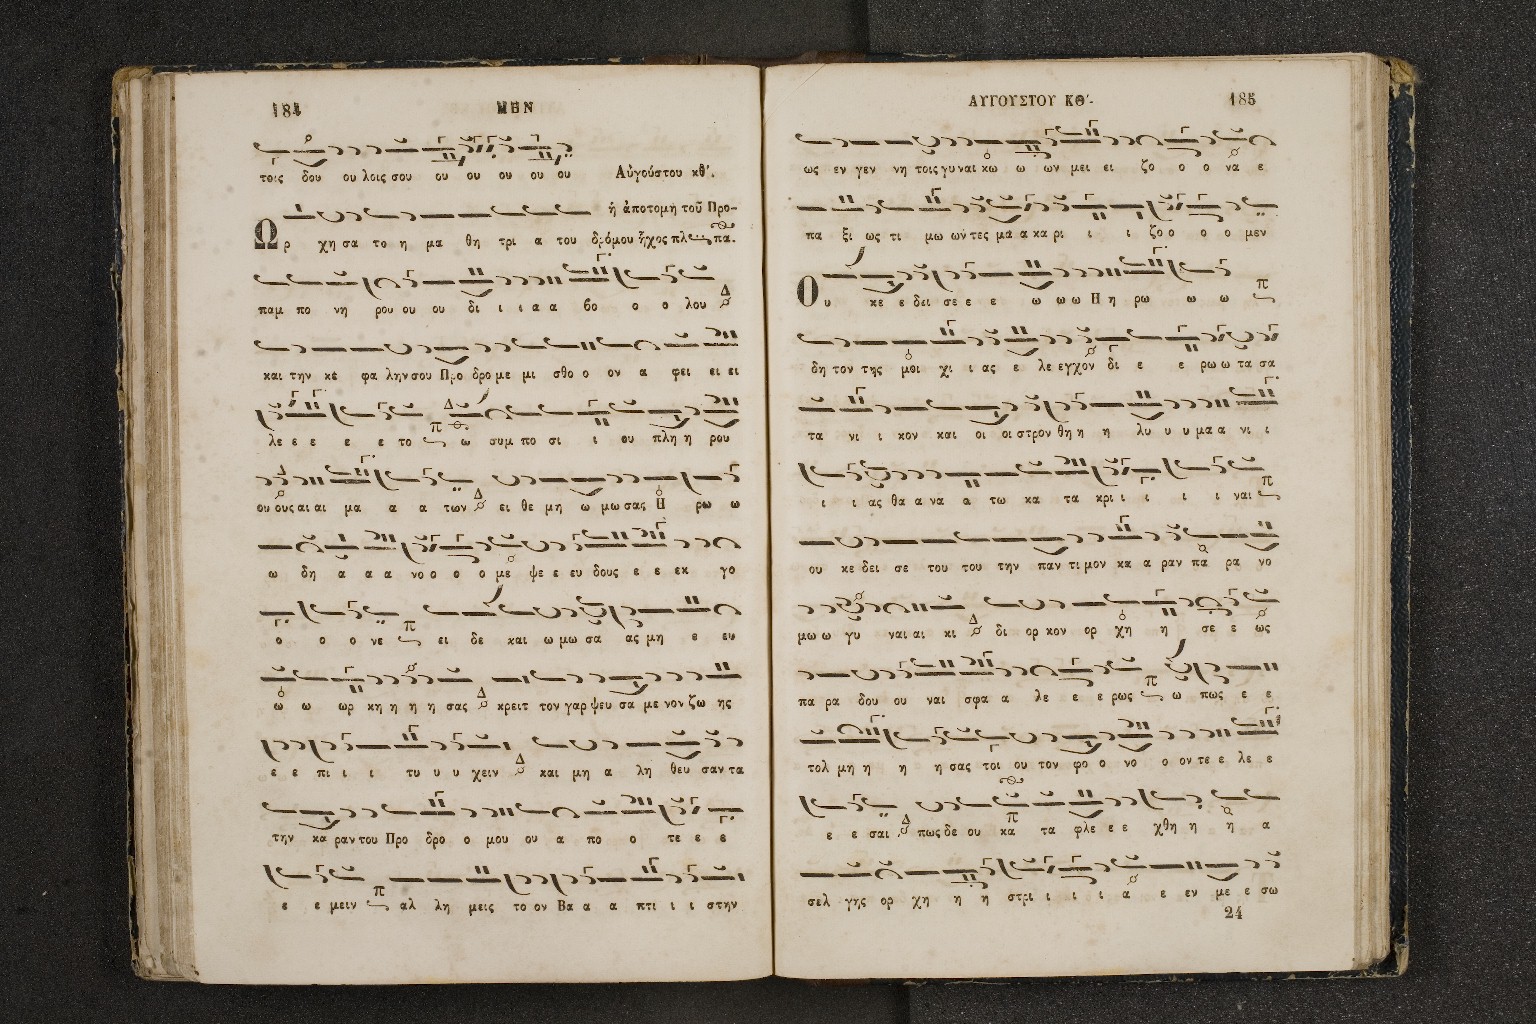 184 ΜΗΝ
τοις δου ου λοις σου ου ου ου ου ου Αὐγούστου κθ'.
ἡ ἀποτομὴ τοῦ Προ-
Ω ρ χη σα το η μα θη τρι α του δρόμου ἦχος πλ πα.
παμ πο νη ρου ου ου δι ι ι α α βο ο ο λου
και την κε φα λην σου Προ δρο με μι σθο ο ον α φει ει ει
λε ε ε ε ε το ω συμ πο σι ι ου πλη η ρου
ου ους αι αι μα α α των ει θε μη ω μω σας Η ρω ω
ω δη α α α νο ο ο ο με ψε ε ευ δους ε ε εκ γο
ο ο ο νε ει δε και ω μω σα ας μη ε ευ
ω ω ωρ κη η η η σας κρειτ τον γαρ ψευ σα με νον ζω ης
ε ε πι ι ι τυ υ υ χειν και μη α λη θευ σαν τα
την κα ραν του Προ δρο ο μου ου α πο ο τε ε ε
ε ε μειν αλ λη μεις το ον Βα α α πτι ι ι στην
ΑΥΓΟΥΣΤΟΥ ΚΘ'. 185
ως εν γεν νη τοις γυ ναι κω ω ων μει ει ζο ο ο να ε
πα ξι ως τι μω ων τες μα α κα ρι ι ι ζο ο ο ο μεν
Ο υ κε ε δει σε ε ε ω ω ω Η η ρω ω ω
δη τον της μοι χι ι ας ε λε εγχον δι ε ε ρω ω τα σα
τα νι ι κον και οι οι στρον θη η η λυ υ υ μα α νι ι
ι ι ας θα α να α τω κα τα κρι ι ι ι ι ναι
ου κε δει σε του του την παν τι μον κα α ραν πα ρα νο
μω ω γυ ναι αι κι δι ορ κον ορ χη η σε ε ως
πα ρα δου ου ναι σφα α λε ε ε ε ρως ω πως ε ε
τολ μη η η η σας τοι ου τον φο ο νο ο ον τε ε λε ε
ε ε σαι πως δε ου κα τα φλε ε ε χθη η η α
σελ γης ορ χη η η στρι ι ι ι α ε εν με ε σω
24